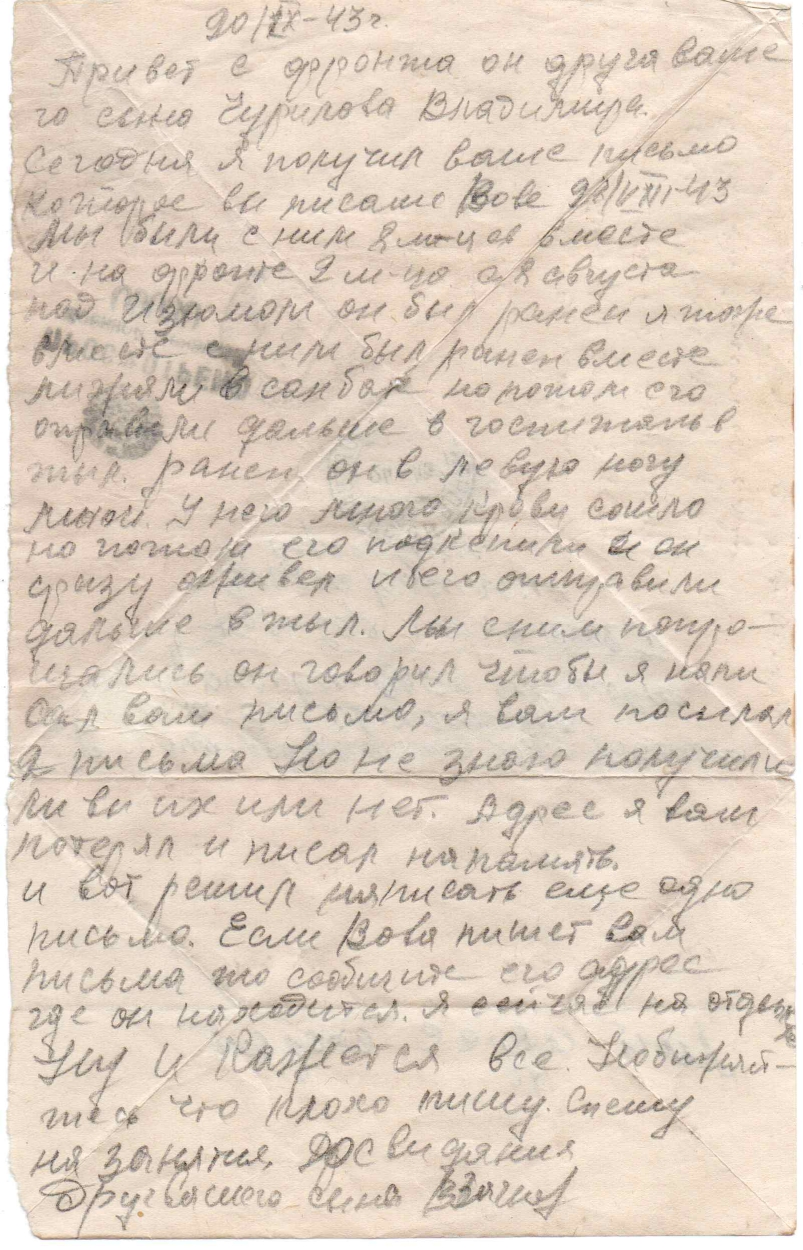 20/IX-43г.
Привет с фронта он друга ваше
го сына Чурилова Владимира.
Сегодня я получил ваше письмо
которое ви писали Вове 20/VIII-43
Мы были с ним 8 м-цев вместе
и на фронте 2 м-ца
под Изюмом он был ранен я тоже
вместе с ним был ранен вместе
лижали в санбате но потом его
отправили дальше в госпиталь в
тыл. ранен он в левую ногу
У него много крови сошло
но потом его подкепили и он
сразу оживел и его отправили
дальше в тыл. Мы с ним попро-
щались он говорил чтобы я напи
сал вам письмо, я вам посылал
2 письма Но не знаю получили
ли ви их или нет. Адрес я ваш
потерял и писал на память.
и вот решил няписать еще одно
письмо. Если Вова пишет вам
письма то сообщите его адрес
где он находится. я сейчас на отдыхе
Ну и Кажется все. Необижяй-
тесь что плохо пишу. Спешу
на занятия. Досвидяния
Друг вашего сына